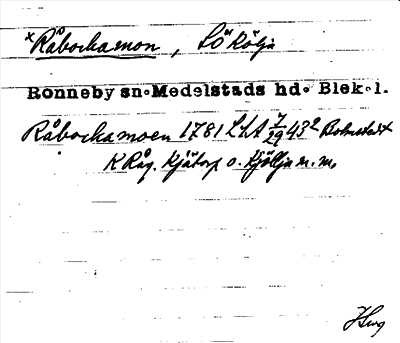 × Råbockamon, Sö Kölja
Ronneby sn. Medelstads hd. Blek. l.
Råbockamoen 1781 LSA 7/29 43² Bohnstedt
K Råg. Kjätorp o. Kjöllja n. m.